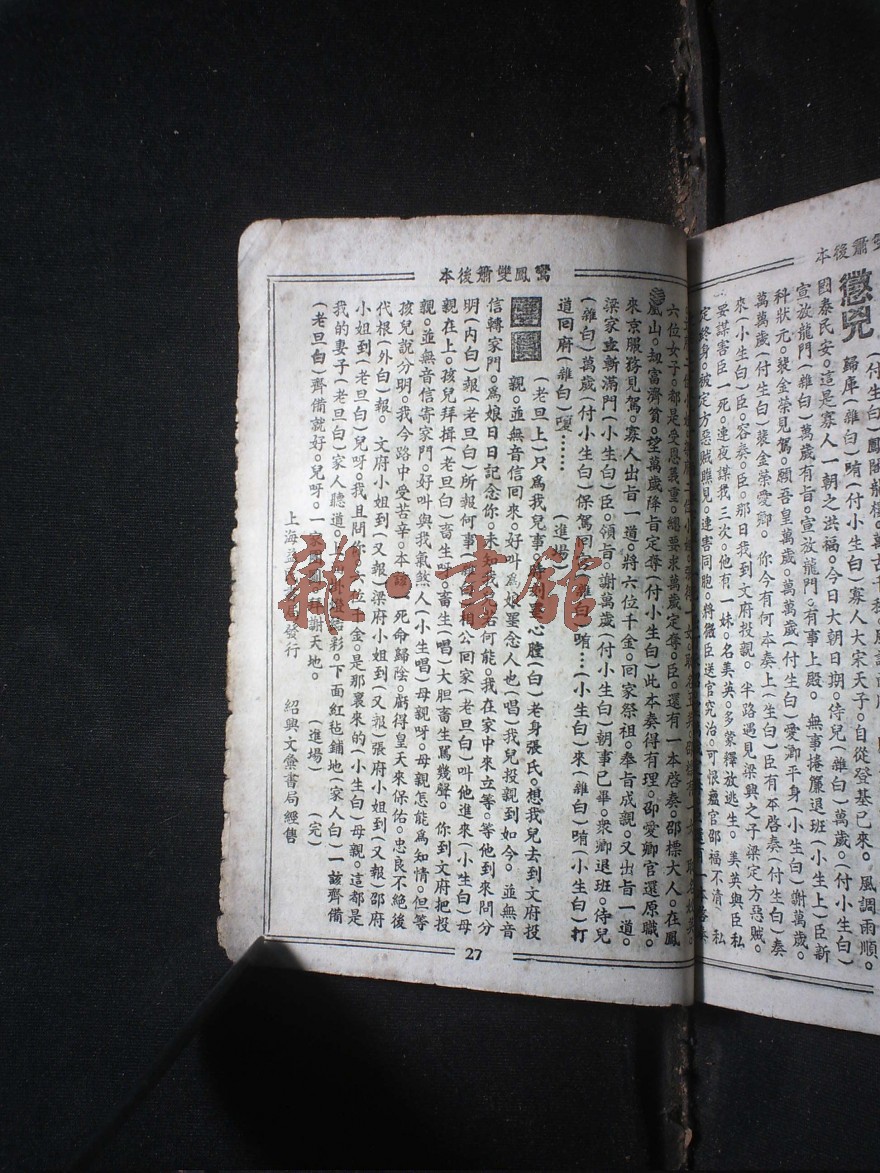 雙簫後本
懲兇
(付生白)鳳閣龍樓。萬古千秋。
歸庫(雜白)哨(付小生白)寡人大宋天子。自從登基已來。風調雨順。
國泰民安。這是寡人一朝之洪福。今日大朝日期。侍兒(雜白)萬歲。(付小生白)
宣放龍門(雜白)萬歲有旨。宣放龍門。有事上殿。無事捲簾退班(小生上)臣新
科狀元。裴金榮見駕。願吾皇萬歲。萬萬歲(付生白)愛卿平身(小生白)謝萬歲。
萬萬歲(付生白)裴金榮愛卿。你今有何本奏上(生白)臣有本啓奏(付生白)奏
來(小生白)臣。容奏。臣。那日我到文府投親。半路遇見梁興之子梁定方惡賊。
要謀害臣一死。連夜謀我三次。他有一妹。名美英。多蒙釋放逃生。美英與臣私
定終身。被定方惡賊瞧見。連害同胞。將微臣送官究治。可恨瘟官邵福不清
鸞鳳雙簫後本
六位女子。都是受恩義重。總要求萬歲定奪。臣。還有一本啓奏。邵標大人。在鳳
凰山。刼富濟貧。望萬歲降旨定奪(付小生白)此本奏得有理。邵愛卿官還原職。
來京服務見駕。寡人出旨一道。將六位千金。回家祭祖。奉旨成親。又出旨一道。
梁家盡斬滿門(小生白)臣。領旨。謝萬歲(付小生白)朝事已畢。衆卿退班。侍兒
(雜白)萬歲(付小生白)保駕回宮(雜白)哨…(小生白)來(雜白)哨(小生白)打
道回府(雜白)嗄……(進場)
(老旦上)只爲我兒事。時刻罣心膛(白)老身張氏。想我兒去到文府投
親。並無音信回來。好叫爲娘罣念人也(唱)我兒投親到如今。並無音
信轉家門。爲娘日日記念你。未知我兒若何能。我在家中來立等。等他到來問分
明(內白)報(老旦白)所報何事(雜白)相公回家(老旦白)叫他進來(小生白)母
親在上。孩兒拜揖(老旦白)畜生呀畜生(唱)大胆畜生罵幾聲。你到文府把投
親。並無音信寄家門。好叫與我氣煞人(小生唱)母親呀。母親怎能爲知情。但等
孩兒說分明。我今路中受苦辛。本該一死命歸陰。虧得皇天來保佑。忠良不絕後
代根(外白)報。文府小姐到(又報)梁府小姐到(又報)張府小姐到(又報)邵府
小姐到(老旦白)兒呀。我且問你。六位千金。是那裏來的(小生白)母親。這都是
我的妻子(老旦白)家人聽道。上面外燈結彩。下面紅毡鋪地(家人白)一該齊備
(老旦白)齊備就好。兒呀。一家團圓拜謝天地。(進場)(完)
上海 書局發行 紹興文彙書局經售
27
雜·書館